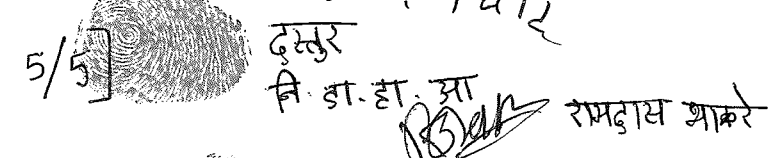 5/5]
दस्तुर
नि. डा. हा. आ
रामदास भाकरे